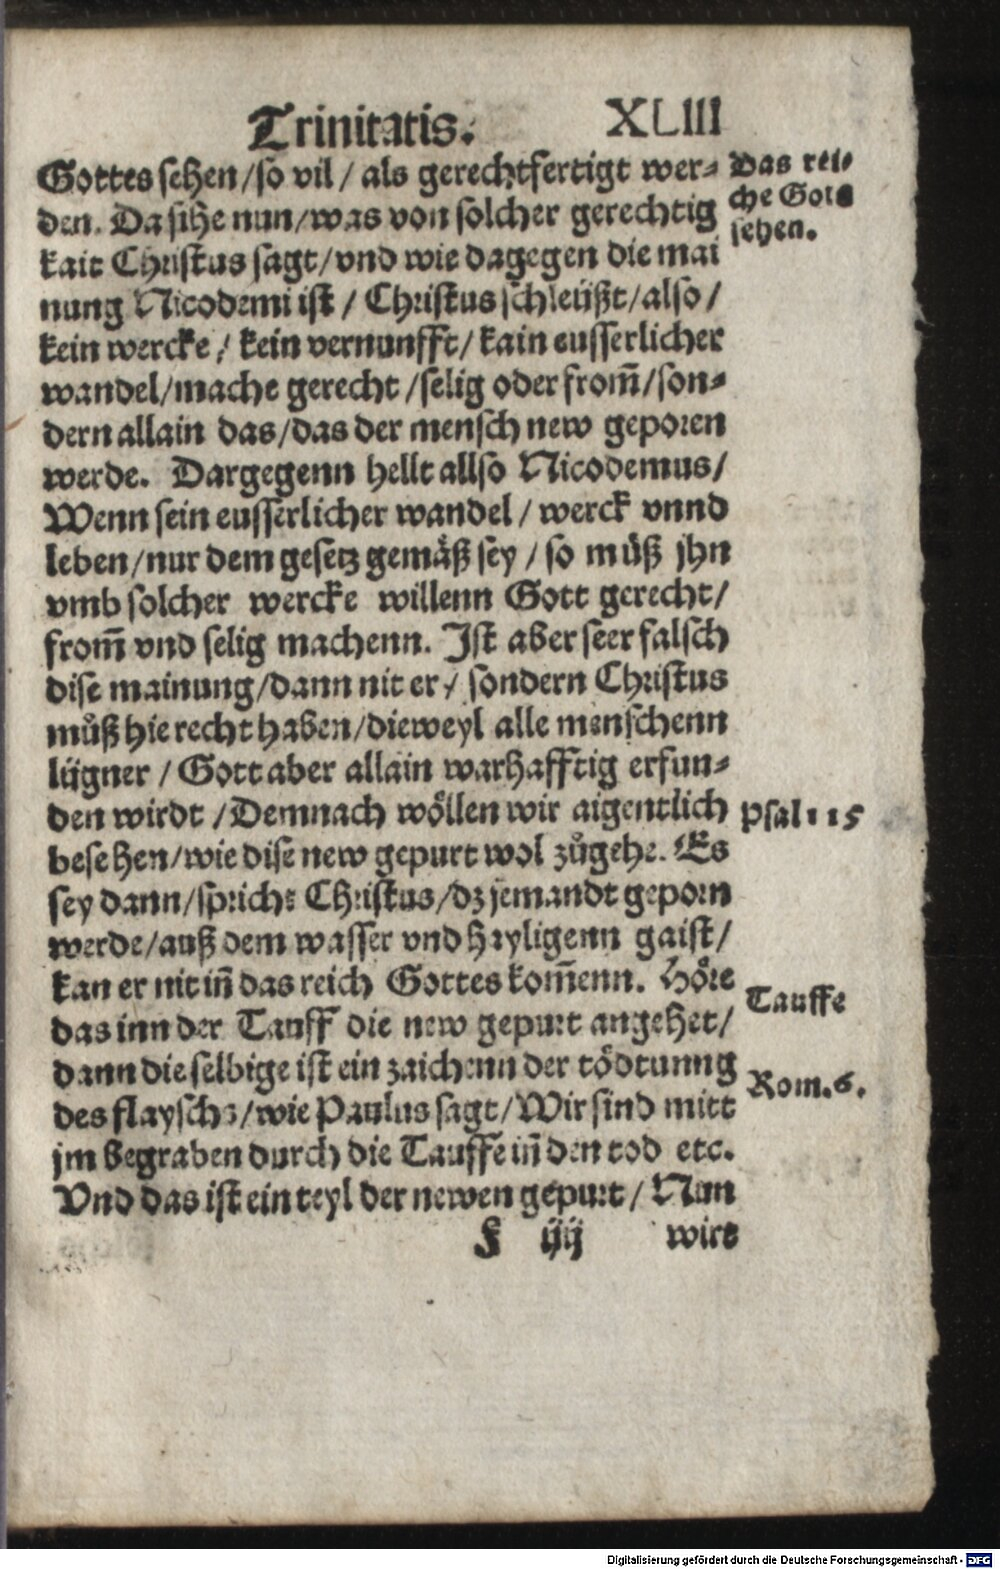 Trinitatis. XLIII
Gottes sehen/so vil/ als gerechtfertigt wer⸗
den. Da sihe nun/was von solcher gerechtig
kait Christus sagt/vnd wie dagegen die mai
nung Nicodemi ist / Christus schleüßt/also/
kein wercke/ kein vernunfft/ kain eusserlicher
wandel/mache gerecht /selig oder from̃/son⸗
dern allain das/das der mensch new geporen
werde. Dargegenn hellt allso Nicodemus/
Wenn sein eusserlicher wandel/ werck vnnd
leben/nur dem gesetz gemäß sey / so müß jhn
vmb solcher wercke willenn Gott gerecht/
from̃ vnd selig machenn. Ist aber seer falsch
dise mainung/dann nit er/ sondern Christus
můß hie recht haben/dieweyl alle menschenn
lügner / Gott aber allain warhafftig erfun⸗
den wirdt /Demnach wöllen wir aigentlich
besehen/wie dise new gepurt wol zůgehe. Es
sey dann/spricht Christus/dz jemandt geporn
werde/auß dem wasser vnd hayligenn gaist/
kan er nit in̄ das reich Gottes kom̃enn. Höre
das inn der Tauff die new gepurt angehet/
dann die selbige ist ein zaichenn der tödtunng
des flayschs/wie Paulus sagt/Wir sind mitt
jm begraben durch die Tauffe in̄ den tod etc.
Vnd das ist ein teyl der newen gepurt/ Nun
F iiij wirt
Das rei⸗
che Gots
sehen.
Psal 115
Tauffe
Rom. 6.
Digitalisierung gefördert durch die Deutsche Forschungsgemeinschaft - DFG